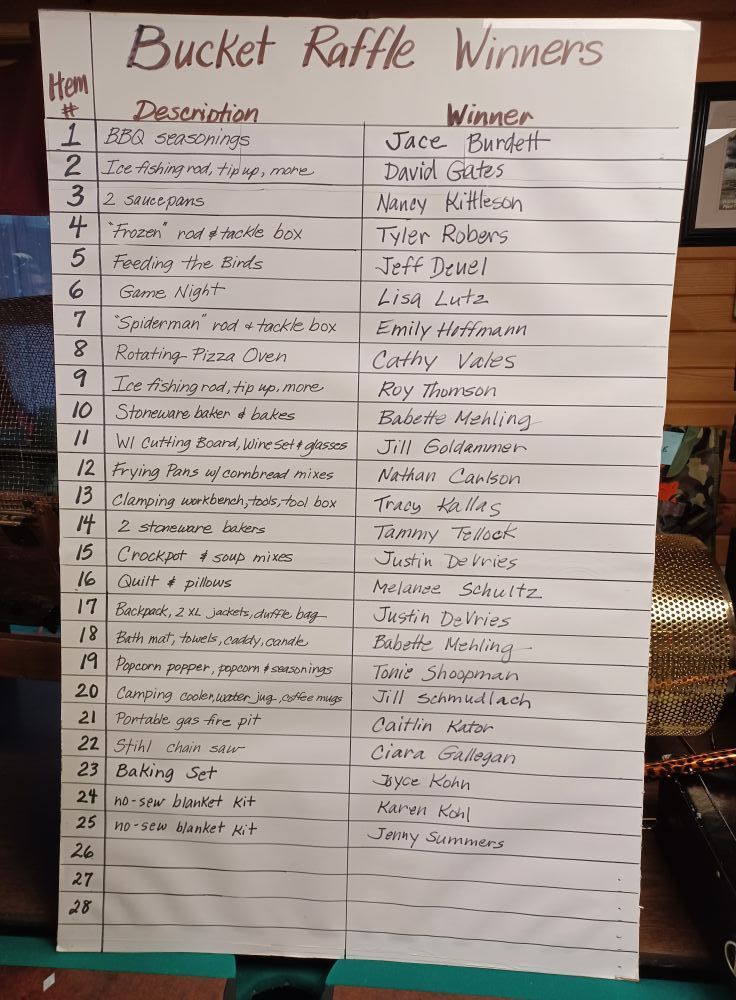 Bucket Raffle Winners
Item # Description Winner
1 BBQ seasonings Jace Burdett
2 Ice fishing rod, tip up, more David Gates
3 2 saucepans Nancy Kittleson
4 "Frozen" rod & tackle box Tyler Robers
5 Feeding the Birds Jeff Deuel
6 Game Night Lisa Lutz
7 "Spiderman" rod & tackle box Emily Hoffmann
8 Rotating Pizza Oven Cathy Vales
9 Ice fishing rod, tip up, more Roy Thomson
10 Stoneware baker & bakes Babette Mehling
11 WI Cutting Board, Wine Set & glasses Jill Goldammer
12 Frying Pans w/ cornbread mixes Nathan Carlson
13 Clamping workbench, tools, tool box Tracy Kallas
14 2 stoneware bakers Tammy Tellock
15 Crockpot & soup mixes Justin DeVries
16 Quilt & pillows Melanee Schultz
17 Backpack, 2 XL jackets, duffle bag Justin DeVries
18 Bath mat, towels, caddy, candle Babette Mehling
19 Popcorn popper, popcorn & seasonings Tonie Shoopman
20 Camping cooler, water jug, coffee mugs Jill Schmudlach
21 Portable gas fire pit Caitlin Kator
22 Stihl chain saw Ciara Gallegan
23 Baking Set Joyce Kohn
24 no-sew blanket kit Karen Kohl
25 no-sew blanket kit Jenny Summers
26
27
28